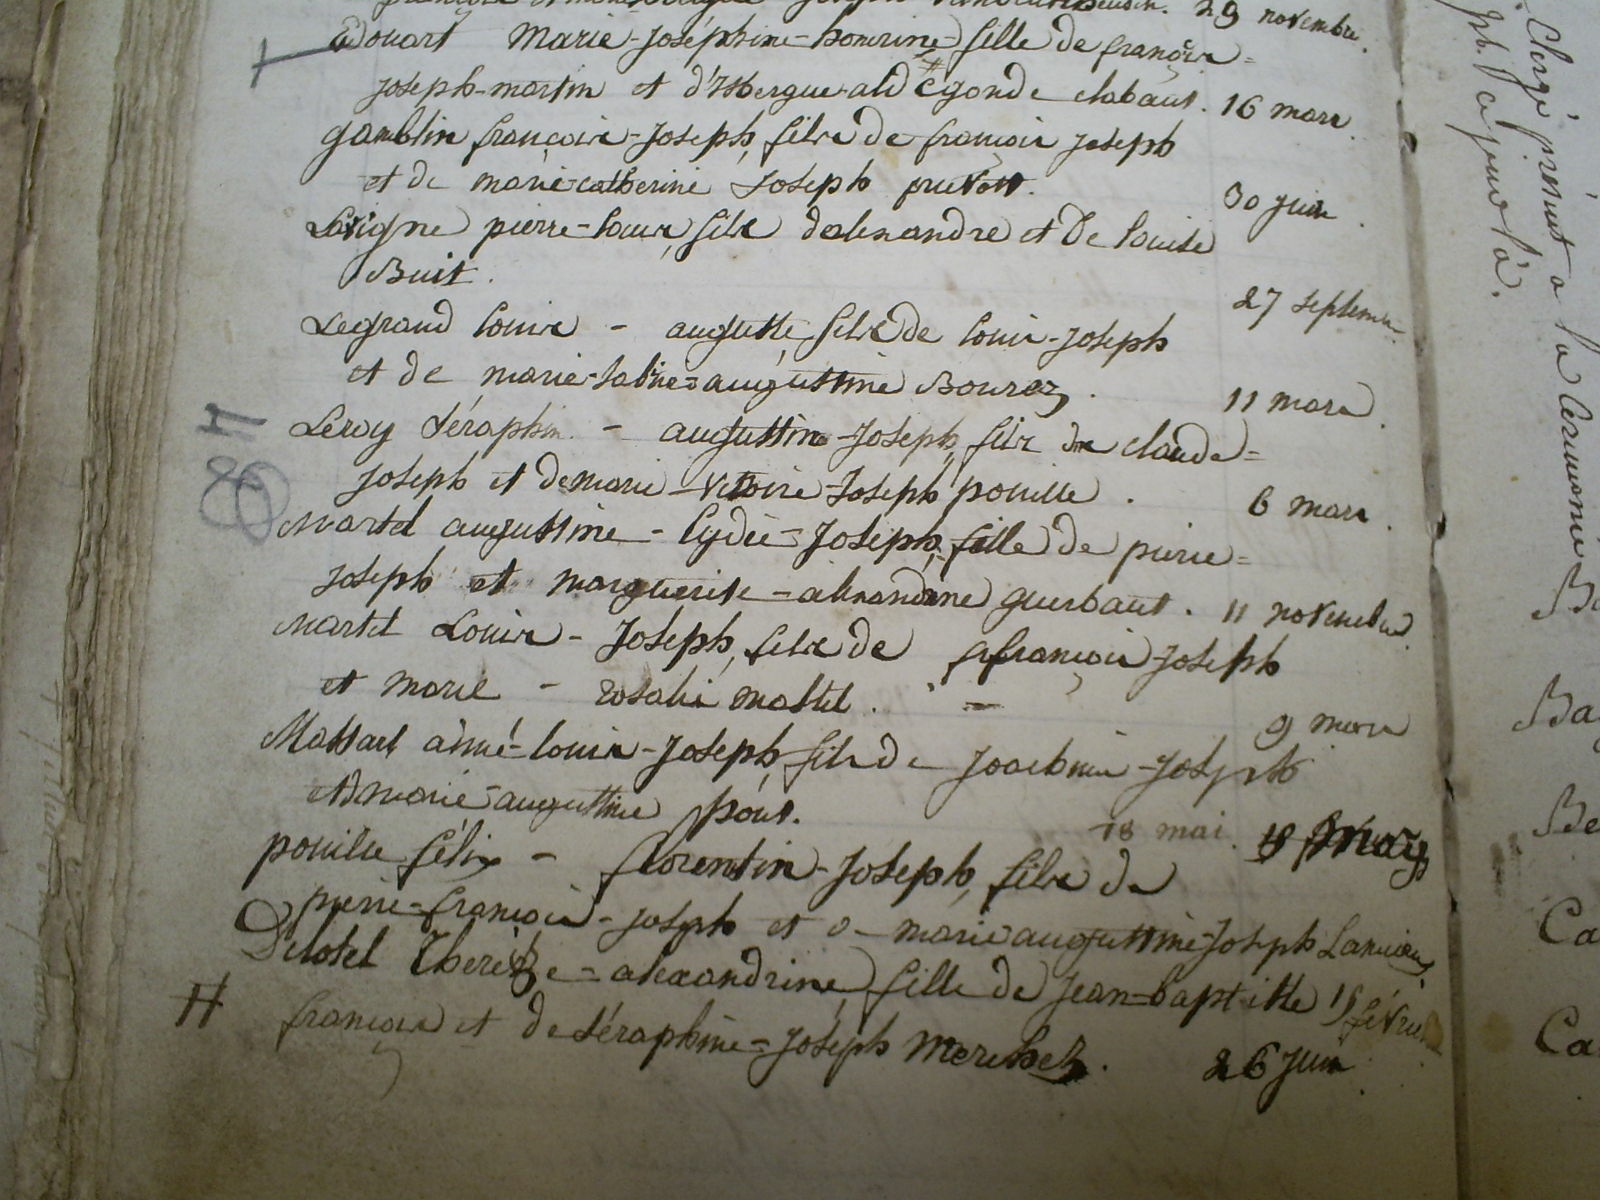 29 novembre.
Edouart Marie-Joséphine-honorine fille de françois=
joseph-martin et d'Isbergue aldégonde clabaut. 16 mars.
gamblin françois-Joseph, fils de françois joseph
et de marie catherine Joseph prevost. 30 juin.
Lavigne pierre-louis, fils dalexandre et de louise
Buit. 27 septembre.
Legrand louis - auguste, fils de louis-Joseph
et de marie-sabine=augustine Bourez. 11 mars.
Leroy Séraphin - augustin-Joseph, fils de claude=
Joseph et de marie-victoire-Joseph pouille. 6 mars.
Martel augustine-lydie-Joseph, fille de pierre=
Joseph et marguerite-alexandrine guerbaut. 11 novembre.
Martel Louis-Joseph, fils de françois-Joseph
et marie - rosalie mastel. 9 mars
Massart aimé-louis-Joseph, fils de Joachim-Joseph
et marie-augustine 18 mai. 18 may
pouille félix - florentin-Joseph, fils de
pierre-françois-joseph et de marie augustine Joseph
Delotel Thereze=alexandrine fille de jean-baptiste 15 février
françois et de séraphine=Joseph 26 juin
H
Clergé présent à la cérémonie
ce jour là.
Ba
Be
Ca
Ca